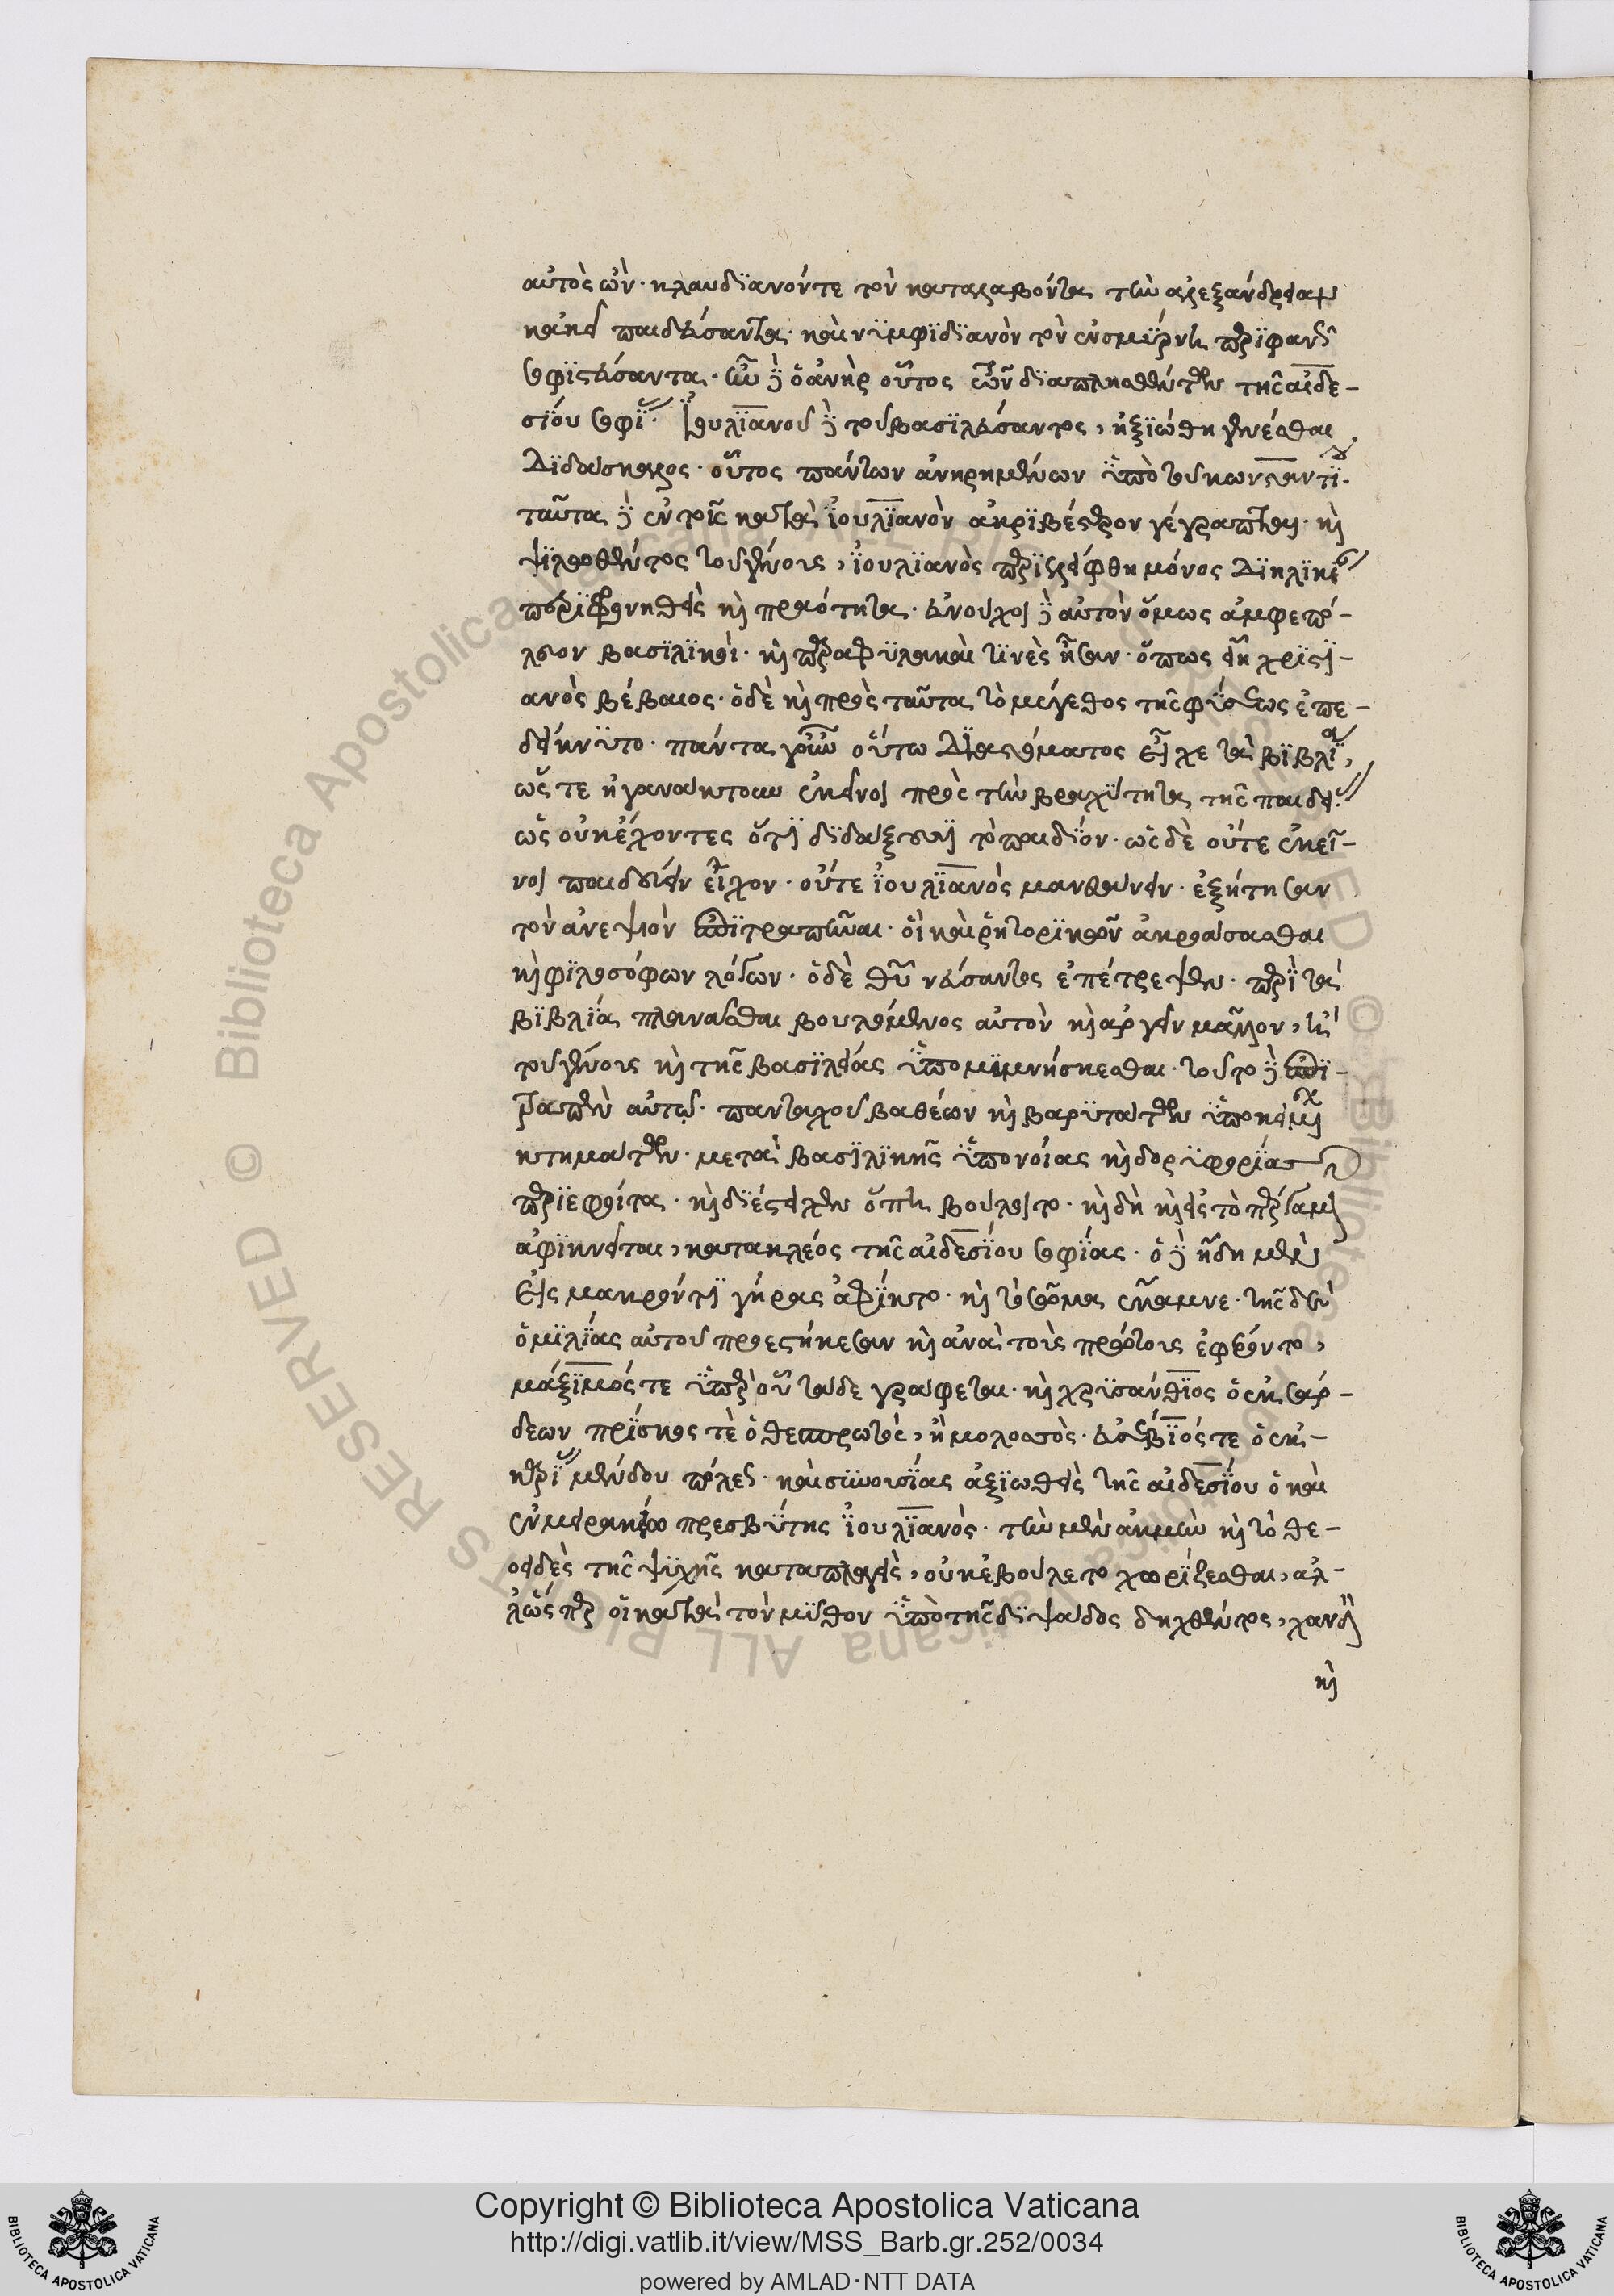 αὐτὸς ὢν· κλαυδϊανόντε τὸν καταλαβόντα τὴν ἀλεξάνδρειαν
κἀκεῖ παιδεύσαντα· καὶ νϋμφϊδϊανὸν τὸν ἐν σμΰρνη περϊφανῶς
σοφϊστεύσαντα· ὧν δὲ ὁ ἀνὴρ οὗτος τῶν διαπλησθέντων τῆς αἰδε-
σΐου σοφΐας· Ϊουλϊανοῦ δὲ τοῦ βασϊλεύσαντος, ἠξϊώθη γενέσθαι
διδάσκαλος· οὗτος πάντων ἀνηρημένων ϋ̔πὸ τοῦ κωνσταντΐου·
ταῦτα δὲ ἐν τοῖς κατὰ ϊ̓ουλϊανὸν ἀκρϊβέστερον γέγραπται· καὶ
ψϊλωθέντος τοῦ γένους, ϊ̓ουλϊανὸς περϊελείφθη μόνος δϊ' ἡλϊκίαν
περϊφρονηθεὶς καὶ πραότητα· εὐνοῦχοι δὲ αὐτὸν ὅμως ἀμφεπό-
λουν βασϊλϊκοὶ· καὶ παραφϋλακαὶ τϊνὲς ἦσαν· ὅπως εἴη χρϊστϊ-
ανὸς βέβαιος· ὁ δὲ καὶ πρὸς ταῦτα τὸ μέγεθος τῆς φΰσεως ἐπε-
δείκνϋτο· πάντα γοῦν οὕτω διὰ στόματος εἶχε τὰ βϊβλΐα,
ὥστε ἠγανάκτουν ἐκεῖνοι πρὸς τὴν βραχϋτητα τῆς παιδείας
ὡς οὐκ ἔχοντες ὅτϊ διδάξουσϊ τὸ παιδΐον· ὡς δὲ οὔτε ἐκεῖ-
νοι παιδεύειν εἶχον· οὔτε ϊ̓ουλϊανὸς μανθάνειν· ἐξήτησαν
τὸν ἀνεψιὸν ἐπϊτραπῆναι· οἱ καὶ ῥητορϊκῶν ἀκροάσασθαι
καὶ φϊλοσόφων λόγων· ὁ δὲ θεοῦ νεύσαντος ἐπέτρεψεν· περῒ τὰ
βϊβλΐα πλανᾶσθαι βουλόμενος αὐτὸν καὶ ἀργεῖν μᾶλλον, ἢ
τοῦ γένους καὶ τῆς βασϊλείας ϋ̔πομϊμνήσκεσθαι· τοῦτο δὲ ἐπϊ-
τραπὲν αὐτῷ· πανταχοῦ βαθέων καὶ βαρϋτάτων ϋ̔ποκειμένων
κτημάτων· μετὰ βασϊλϊκῆς ϋ̔πονοίας καὶ δορϋφορΐας
περϊεφοίτα· καὶ δϊέστειχεν ὅπη βούλοιτο· καὶ δὴ καὶ εἰς τὸ πέργαμον
ἀφϊκνεῖται, κατὰ κλέος τῆς αἰδεσΐου σοφΐας· ὁ δὲ ἤδη μὲν
εἰς μακρόντϊ γήρας ἀφΐκτο· καὶ τὸ σῶμα ἔκαμνε· τῆς δὲ
ὁμϊλΐας αὐτοῦ προεστήκεσαν καὶ ἀνὰ τοὺς πρώτους ἐφέροντο,
μάξϊμός τε ϋ̔πὲρ οὗ τάδε γράφεται· καὶ χρϋσάνθϊος ὁ ἐκ σάρ-
δεων πρΐσκος τὲ ὁ θεσπρωτός, ἢ μολοσσὸς· εὐσέβϊός τε ὁ ἐκ-
καρΐας μύνδου πόλεως· καὶ σϋνουσΐας ἀξϊωθεὶς τῆς αἰδεσΐου ὁ καὶ
ἐν μειρακΐῳ πρεσβΰτης ϊ̓ουλϊανὸς· τὴν μὲν ἀκμὴν καὶ τὸ θε-
οειδὲς τῆς ψϋχῆς καταπλαγεὶς, οὐκ ἐβούλετο χωρΐζεσθαι, ἀλ-
λ' ὥσπερ οἱ κατὰ τὸν μῦθον ϋ̔πὸ τῆς διψάδος δηχθέντες, χανδὸν
καὶ
Copyright © Biblioteca Apostolica Vaticana
http://digi.vatlib.it/view/MSS_Barb.gr.252/0034
powered by AMLAD·NTT DATA